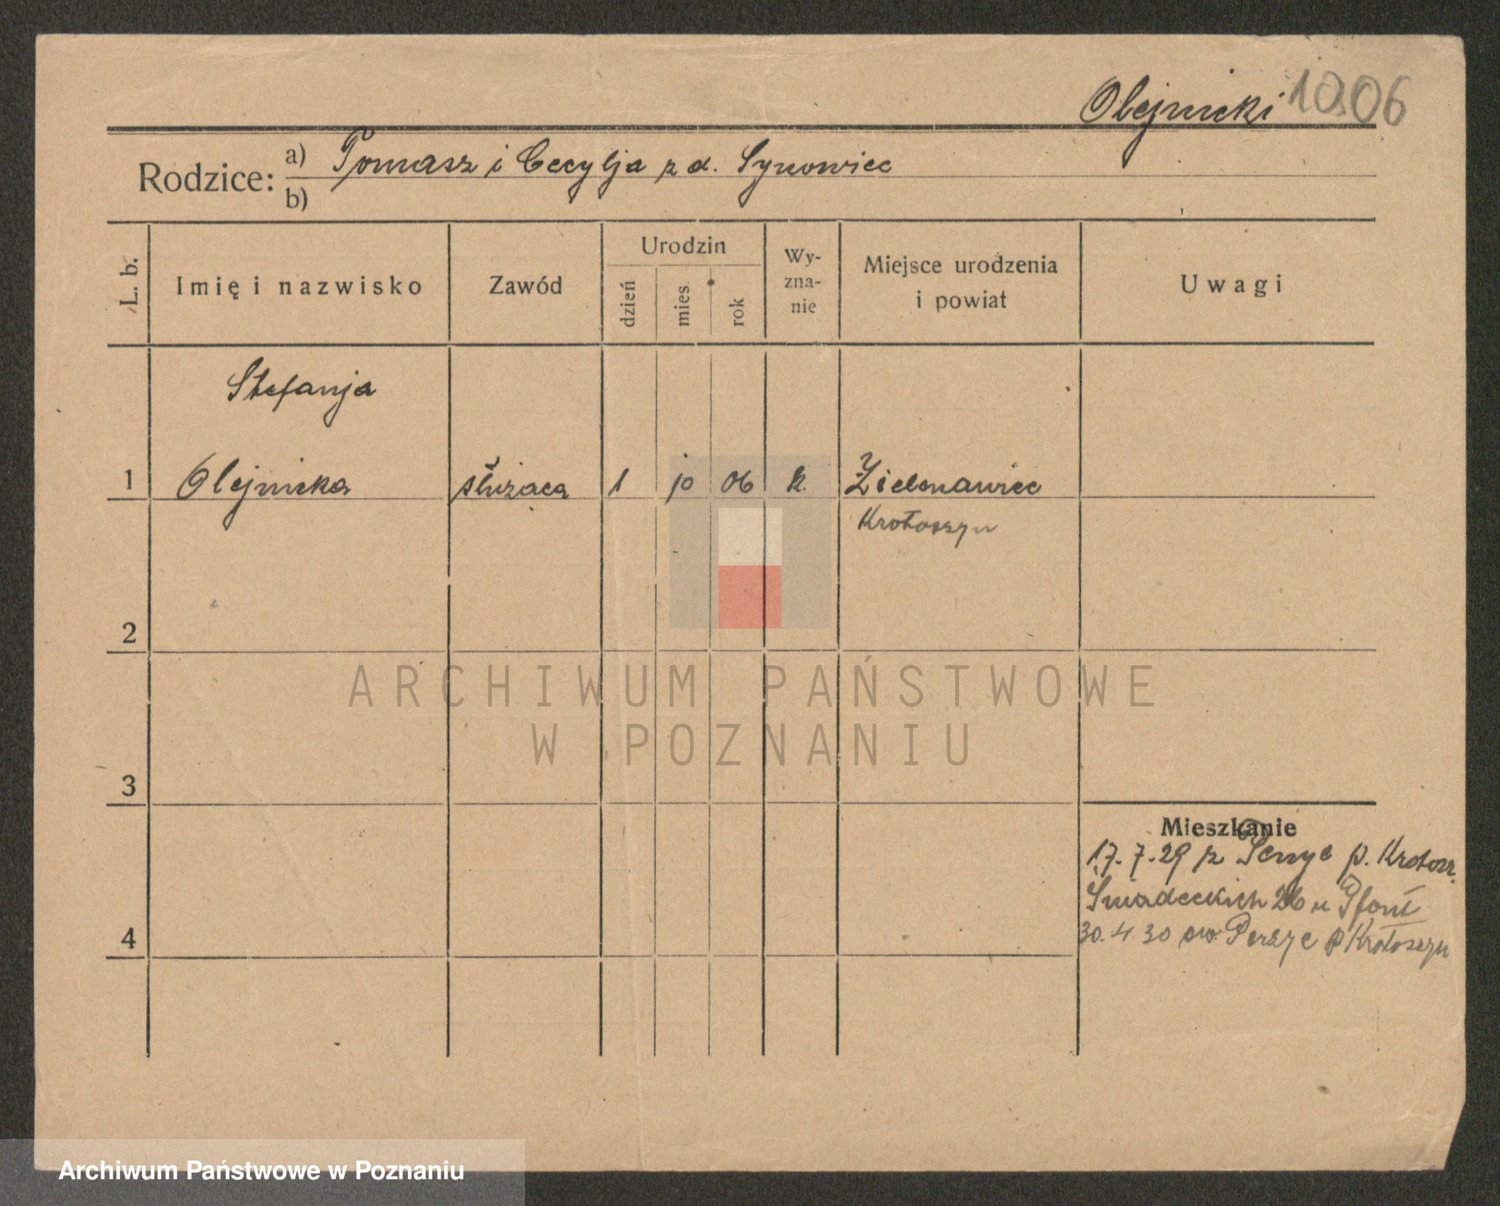 Olejnicki 1006
Rodzice: a) Tomasz i Cecylja z d. Synowiec
b)
L. b.
Imię i nazwisko
Zawód
Urodzin
dzień
mies.
rok
Wy-
zna-
nie
Miejsce urodzenia
i powiat
Uwagi
Stefanja
1 Olejnicka służąca 1 10 06 k.
Krotoszyn
2
ARCHIWUM PAŃSTWOWE
W POZNANIU
3
Mieszkanie
17.7.29 z p. Krotosz.
4 Śniadeckich 26 u
30.4.30 p Krotoszyn
Archiwum Państwowe w Poznaniu